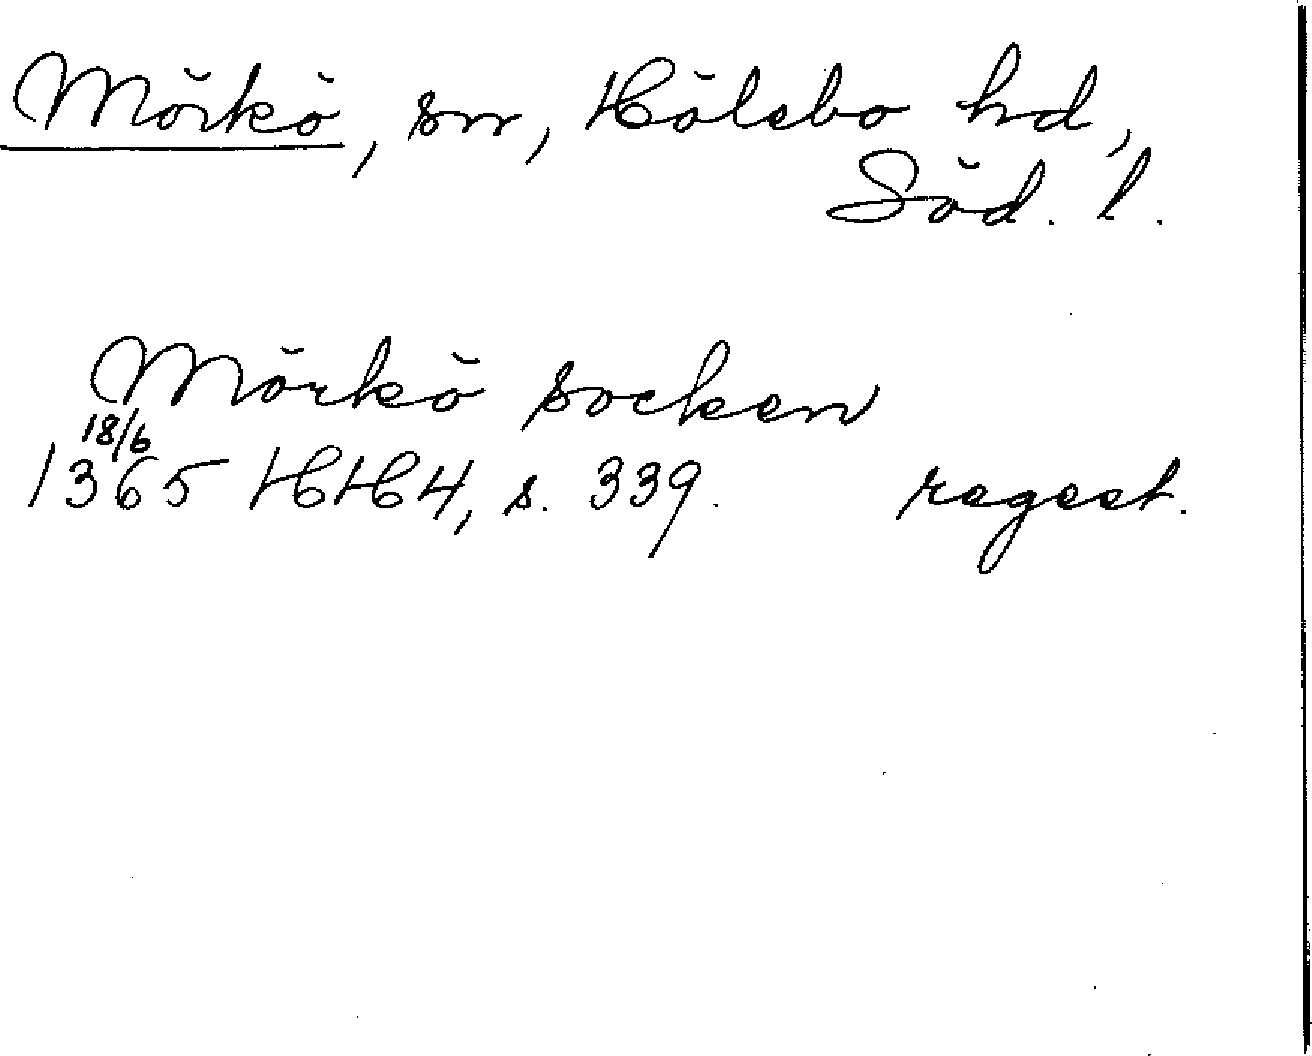 Mörkö, sn, Hölebo hd,
Söd. l.
Mörkö socken
18/6
1365 HH 4, s. 339. regest.